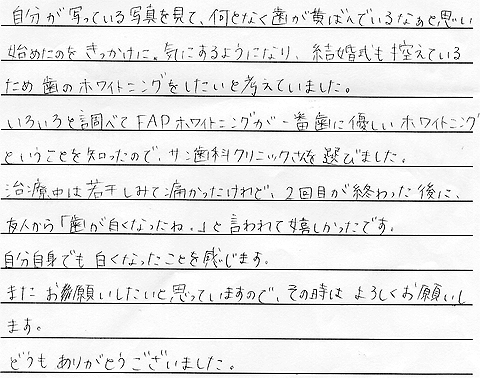 自分が写っている写真を見て、何となく歯が黄ばんでいるなぁと思い
始めたのをきっかけに。気にするようになり、結婚式も控えている
ため歯のホワイトニングをしたいと考えていました。
いろいろと調べてFAPホワイトニングが一番歯に優しいホワイトニング
ということを知ったので、サン歯科クリニックさんを選びました。
治療中は若干しみて痛かったけれど、2回目が終わった後に、
友人から「歯が白くなったね。」と言われて嬉しかったです。
自分自身でも白くなったことを感じます。
またお願いしたいと思っていますので、その時はよろしくお願いし
ます。
どうもありがとうございました。